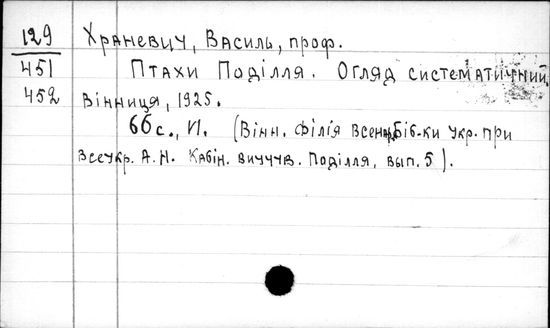 129 Храневич, Василь, проф.
451 Птахи Поділля. Огляд систематичний
452 Вінниця, 1925.
66 с., И. (Вінн. Філія Всен. Біб-ки Укр. при
Всеукр. А.Н. Кабін. виччув. Поділля, вып. 5).